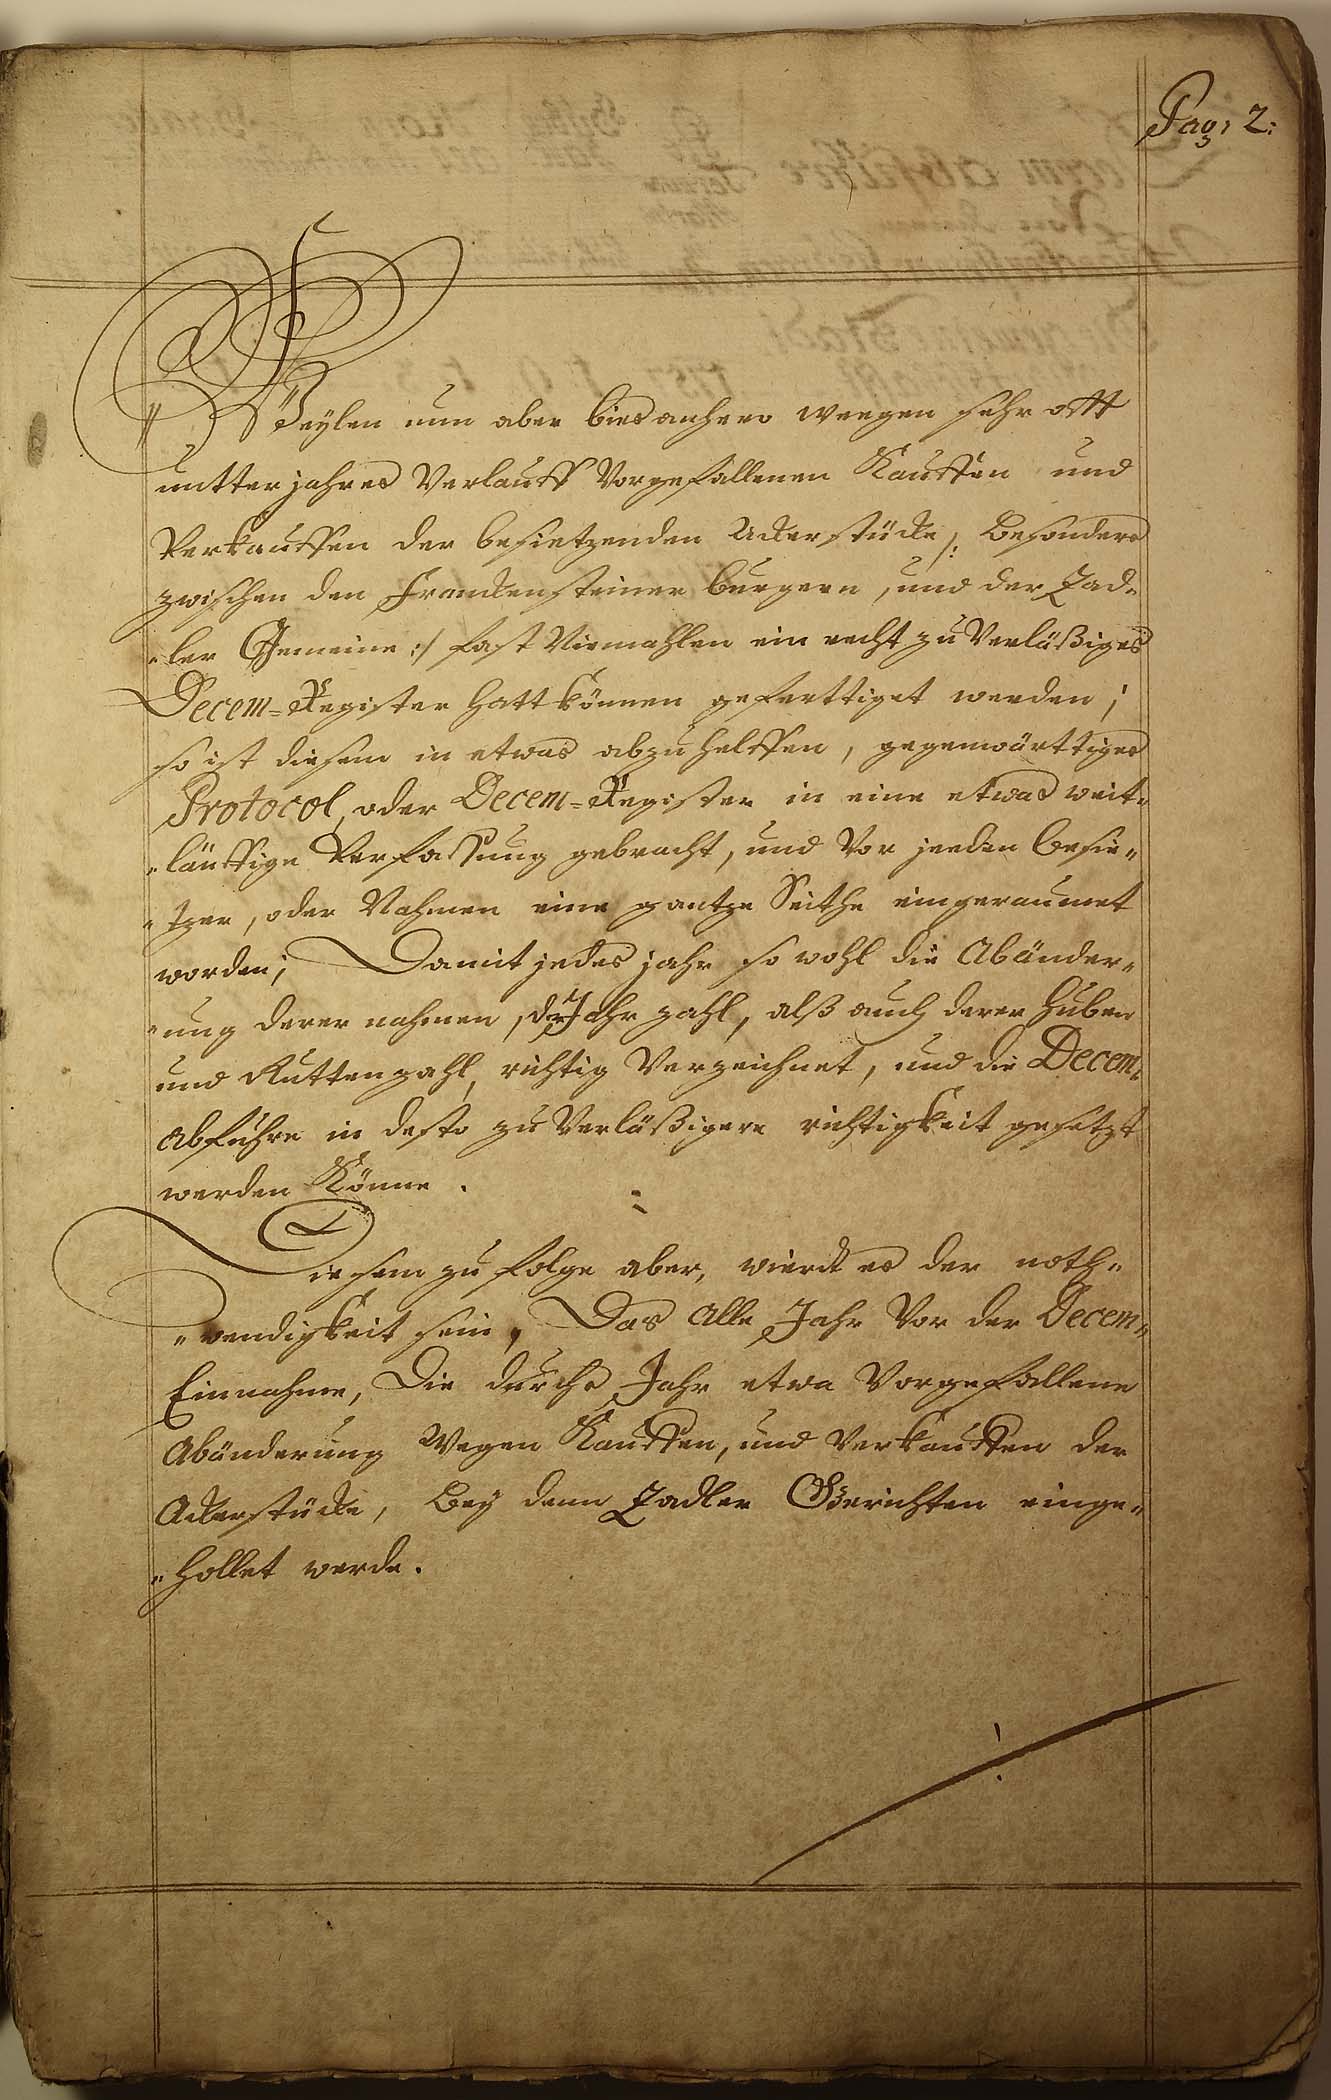 Pag: 2:
Weylen nun aber bies anhero weegen sehr offt
untter jahres Verlauff Vorgefallenen Kauffen und
Verkauffen der besietzenden Ackerstücke /: besonders
zwischen den Franckensteiner burgern, und der Zad-
-ler Gemeine :/ fast Niemahlen ein recht zu Verläßiges
Decem-Register hatt können geferttiget werden;
so ist diesem in etwas abzuhelffen, gegenwärttiges
Protocol, oder Decem-Register in eine etwas weit-
-läuffige Verfassung gebracht, und Vor jeeden besie-
-tzer, oder Nahmen eine gantze Seithe eingeraumet
worden; Damit jedes jahr so wohl die Abänder-
-ung derer nahmen, der Jahr zahl, alß auch derer huben
und Ruttenzahl, richtig Verzeichnet, und die Decem-
Abfuhre in desto zu Verläßigere richtigkeit gesetzt
werden Könne.
Diesem zu folge aber, wierdt es der noth-
-wendigkeit sein, Das Alle Jahr Vor der Decem-
Einnahme, Die durchs Jahr etwa Vorgefallene
Abänderung Wegen Kauffen, und Verkauffen der
Ackerstücke, Bey denn Zadler Gerichten einge-
-hollet werde.